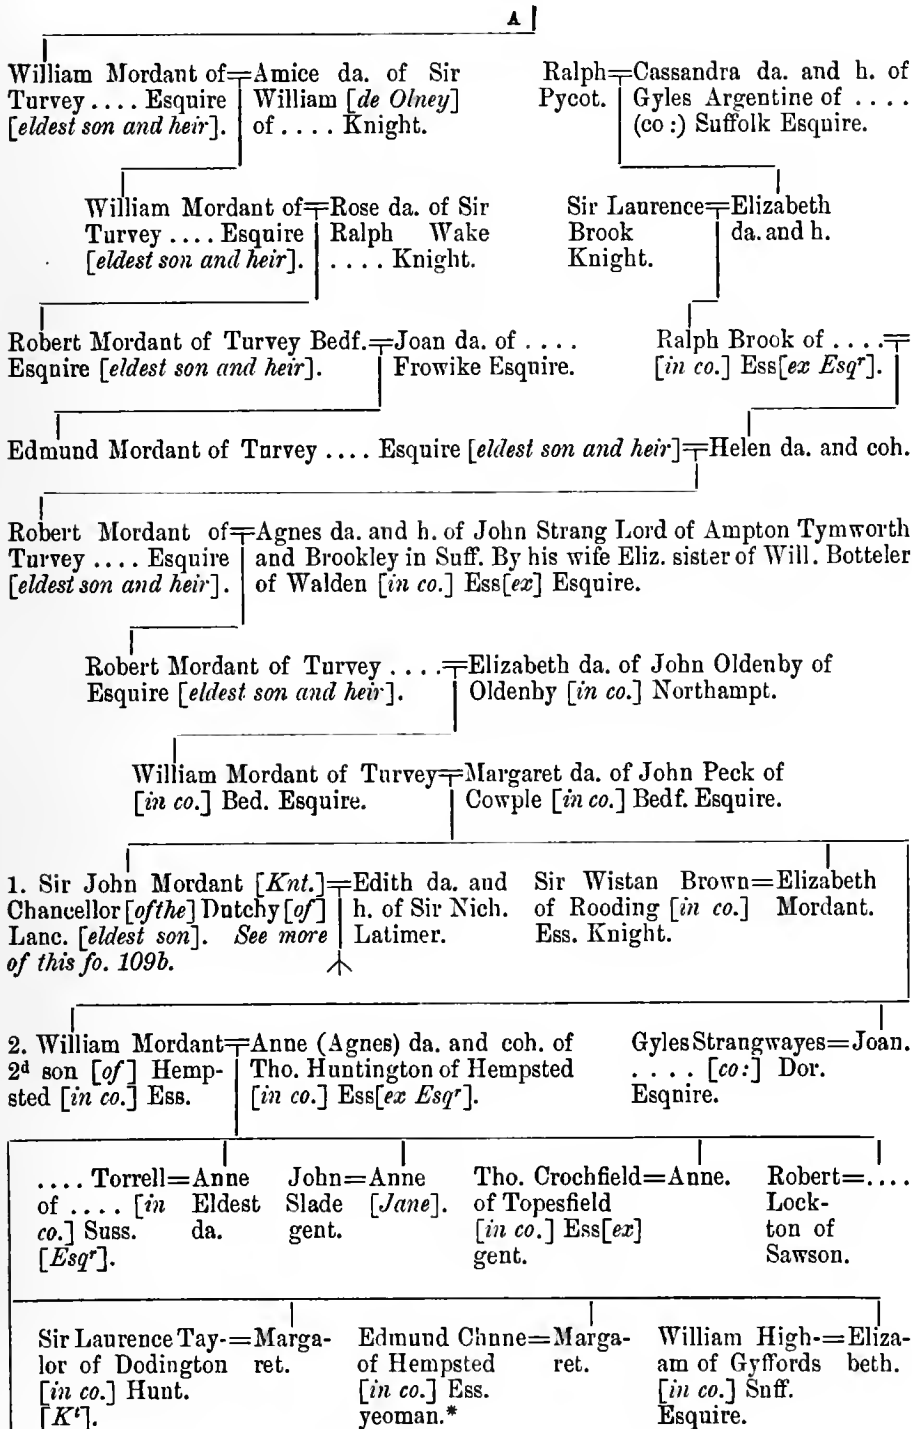 A
William Mordant of Turvey .... Esquire [eldest son and heir]. = Amice da. of Sir William [de Olney] of .... Knight.
Ralph Pycot. = Cassandra da. and h. of Gyles Argentine of .... (co :) Suffolk Esquire.
William Mordant of Turvey .... Esquire [eldest son and heir]. = Rose da. of Sir Ralph Wake .... Knight.
Sir Laurence Brook Knight. = Elizabeth da. and h.
Robert Mordant of Turvey Bedf. Esquire [eldest son and heir]. = Joan da. of .... Frowike Esquire.
Ralph Brook of .... [in co.] Ess[ex Esqr]. =
Edmund Mordant of Turvey .... Esquire [eldest son and heir] = Helen da. and coh.
Robert Mordant of Turvey .... Esquire [eldest son and heir]. = Agnes da. and h. of John Strang Lord of Ampton Tymworth and Brookley in Suff. By his wife Eliz. sister of Will. Botteler of Walden [in co.] Ess[ex] Esquire.
Robert Mordant of Turvey .... Esquire [eldest son and heir]. = Elizabeth da. of John Oldenby of Oldenby [in co.] Northampt.
William Mordant of Turvey [in co.] Bed. Esquire. = Margaret da. of John Peck of Cowple [in co.] Bedf. Esquire.
1. Sir John Mordant [Knt.] Chancellor [of the] Dutchy [of] Lanc. [eldest son]. See more of this fo. 109b. = Edith da. and h. of Sir Nich. Latimer.
Sir Wistan Brown of Rooding [in co.] Ess. Knight. = Elizabeth Mordant.
2. William Mordant 2d son [of] Hempsted [in co.] Ess. = Anne (Agnes) da. and coh. of Tho. Huntington of Hempsted [in co.] Ess[ex Esqr].
Gyles Strangwayes .... [co:] Dor. Esquire. = Joan.
.... Torrell of .... [in co.] Suss. [Esqr]. = Anne Eldest da.
John Slade gent. = Anne [Jane].
Tho. Crochfield of Topesfield [in co.] Ess[ex] gent. = Anne.
Robert Lockton of Sawson. = ....
Sir Laurence Taylor of Dodington [in co.] Hunt. [Kt]. = Margaret.
Edmund Chune of Hempsted [in co.] Ess. yeoman.* = Margaret.
William Higham of Gyffords [in co.] Suff. Esquire. = Elizabeth.